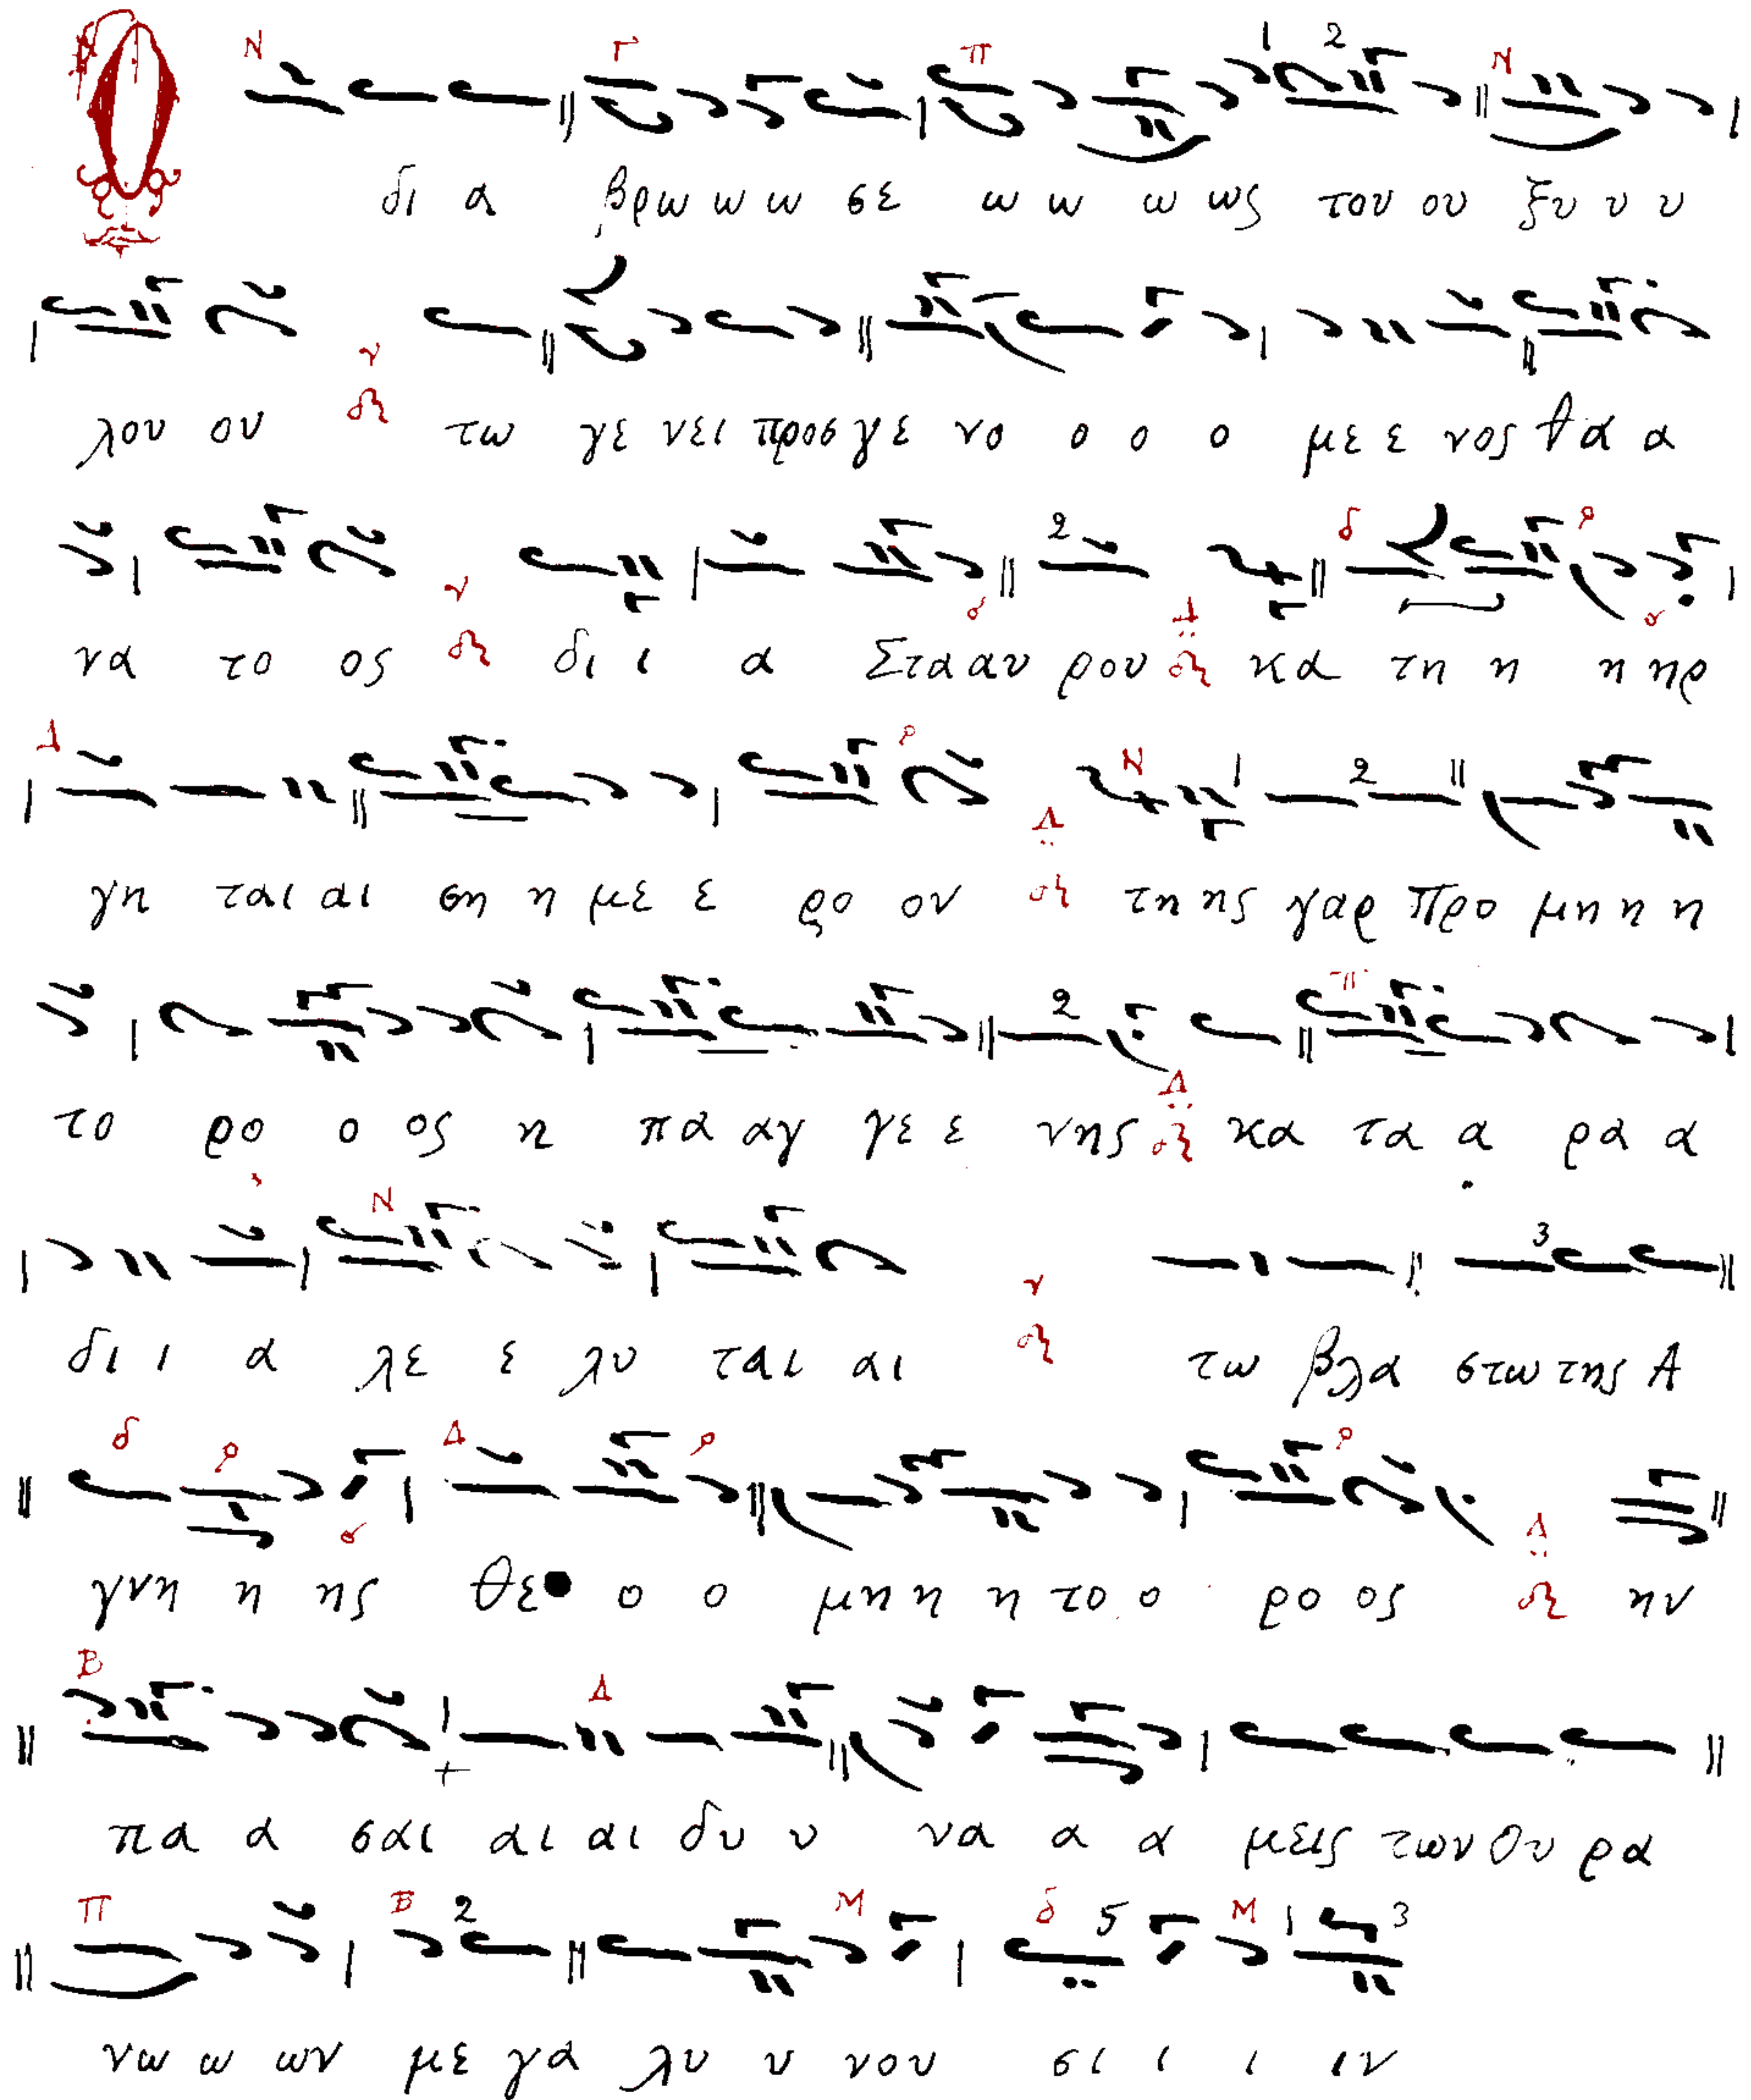 Ο δι α βρω ω ω σε ω ω ω ως του ου ξυ υ υ
λου ου τω γε νει προσ γε νο ο ο ο με ε νος θα α
να το ος δι ι α Στα αυ ρου κα τη η η ηρ
γη ται αι ση η με ε ρο ον τη ης γαρ Προ μη η η
το ρο ο ος η πα αγ γε ε νης κα τα α ρα α
δι ι α λε ε λυ ται αι τω βλα στω της Α
γνη η ης Θε ο ο μη η η το ο ρο ος ην
πα α σαι αι αι δυ υ να α α μεις των Ου ρα
νω ω ων με γα λυ υ νου σι ι ι ιν